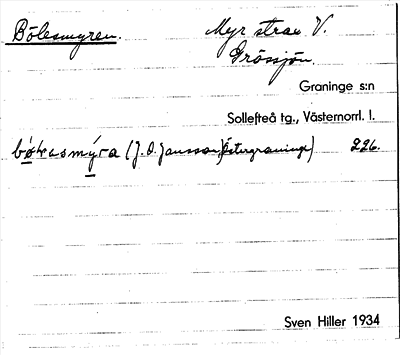 Bölesmyren. Myr strax V.
Grössjön.
Graninge s:n
Sollefteå tg., Västernorrl. l.
(J. O. Jansson, Östergraninge) 226.
Sven Hiller 1934